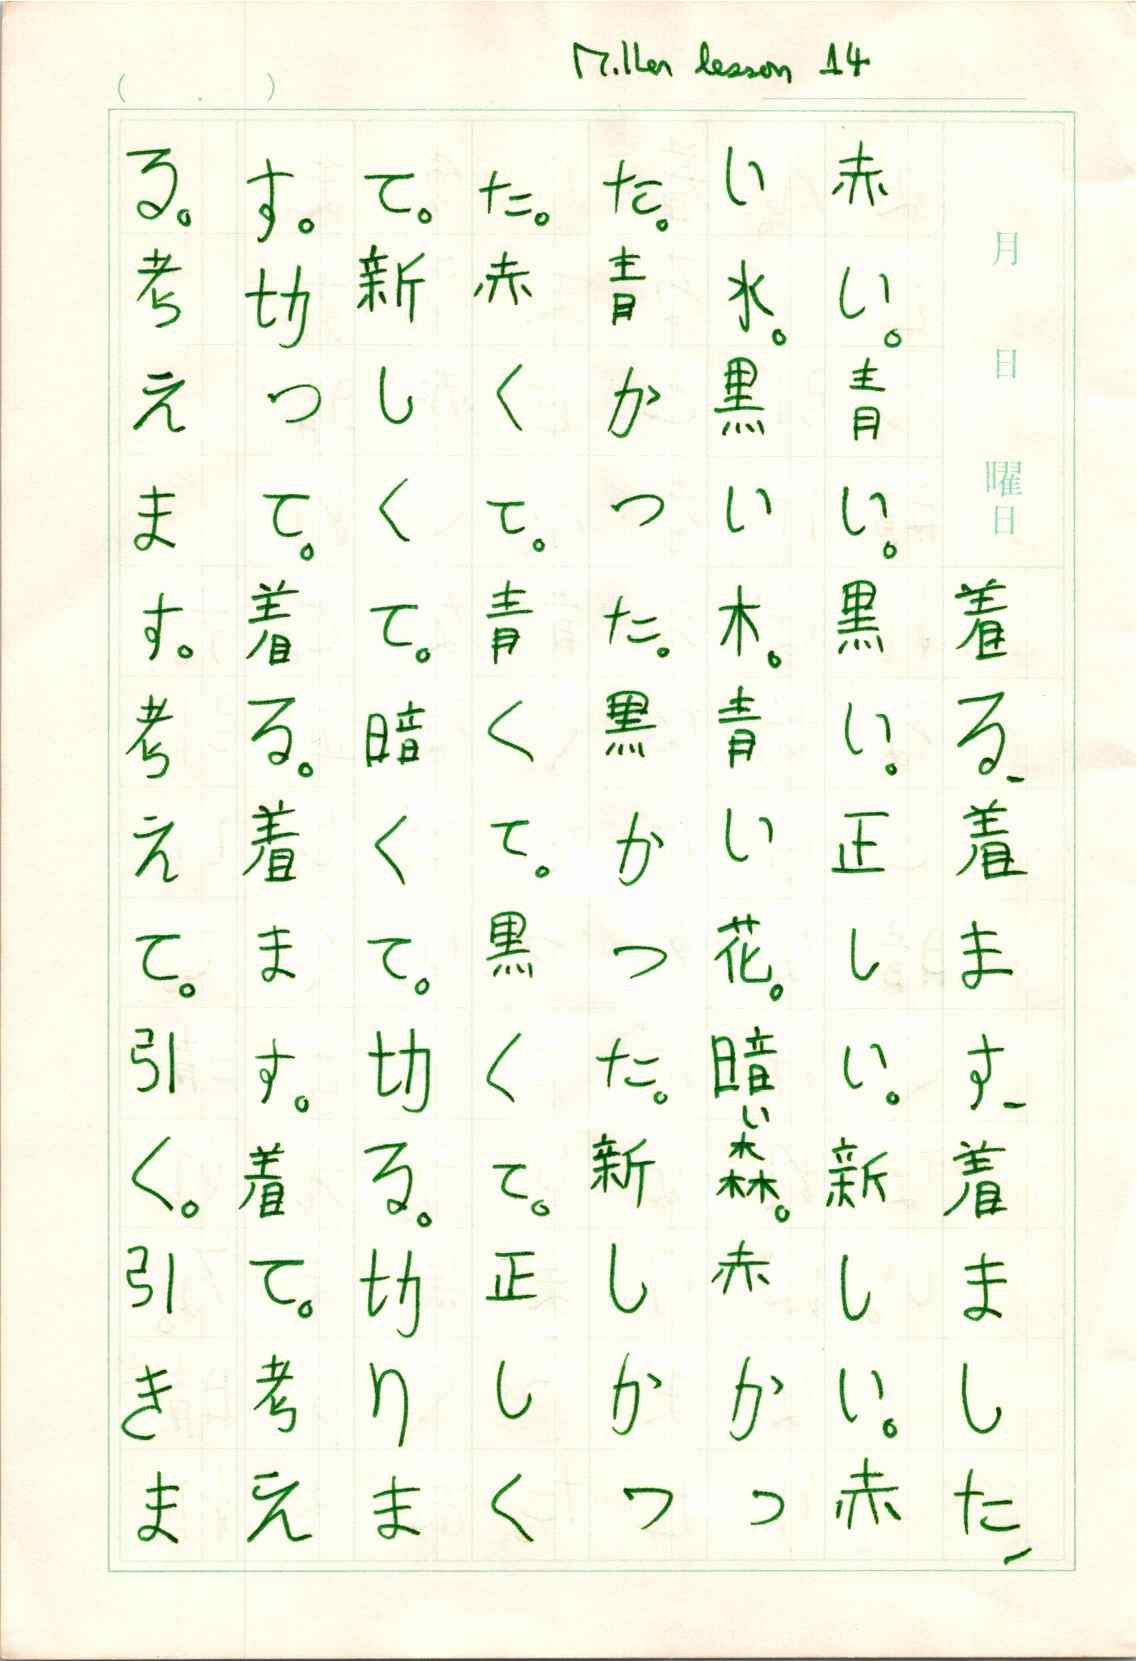 Miller lesson 14
( . )
月 日 曜日
着る、着ます、着ました、
赤い。青い。黒い。正しい。新しい。赤
い水。黒い木。青い花。暗い森。赤かっ
た。青かった。黒かった。新しかっ
た。赤くて。青くて。黒くて。正しく
て。新しくて。暗くて。切る。切りま
す。切って。着る。着ます。着て。考え
る。考えます。考えて。引く。引きま